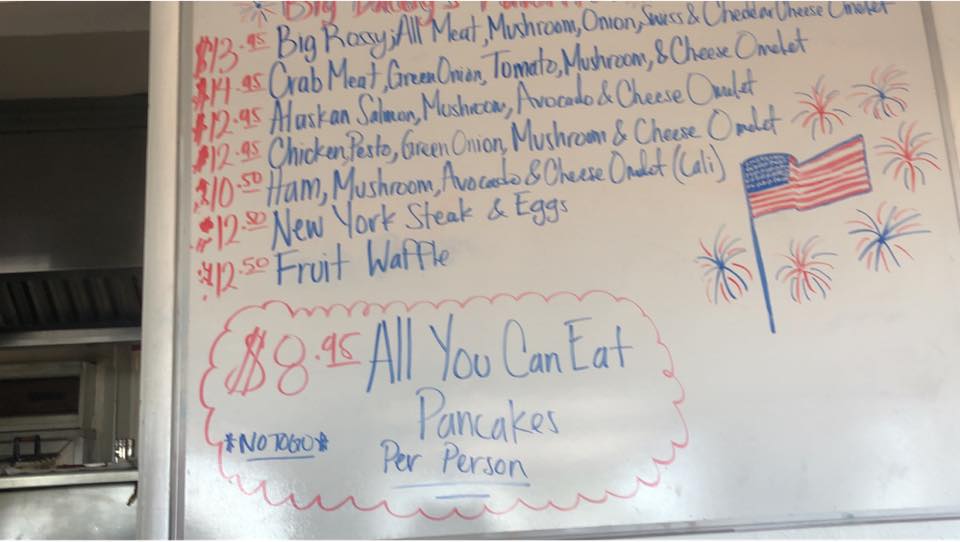 Big
$13.95 Big Rossy; All Meat, Mushroom, Onion, Swiss & Cheddar Cheese Omelet
$14.95 Crab Meat, Green Onion, Tomato, Mushroom, & Cheese Omelet
$12.95 Alaskan Salmon, Mushroom, Avocado & Cheese Omelet
$12.95 Chicken, Pesto, Green Onion, Mushroom & Cheese Omelet
$10.50 Ham, Mushroom, Avocado & Cheese Omelet (Cali)
$12.50 New York Steak & Eggs
$12.50 Fruit Waffle
$8.95 All You Can Eat
Pancakes
*NO TOGO*
Per Person